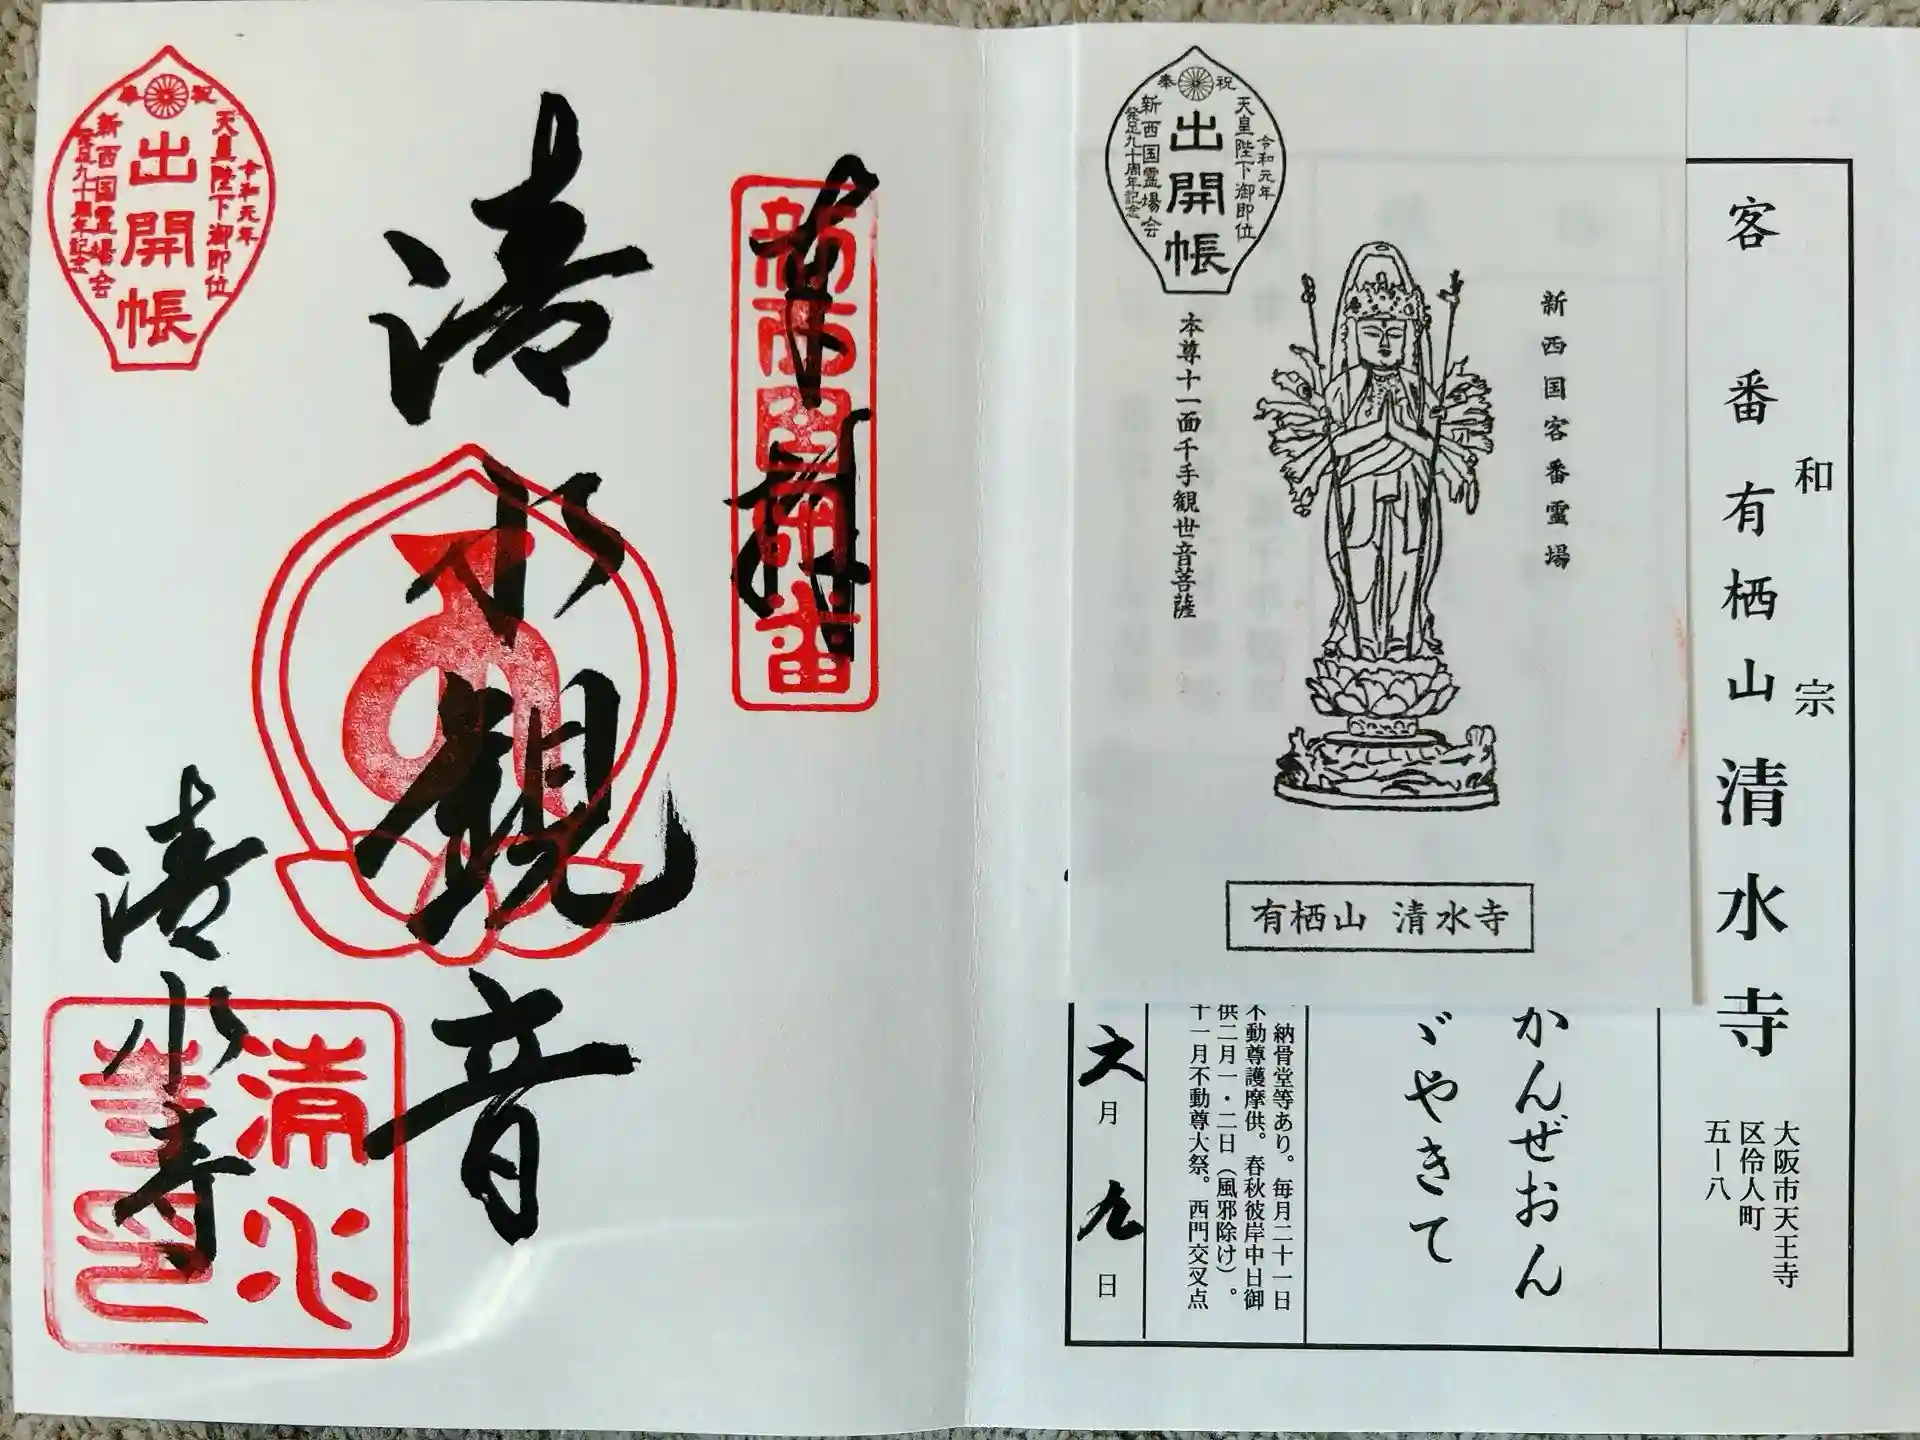 客番 有栖山 清水寺
和宗
大阪市天王寺
区伶人町
五ー八
かんぜおん
ゞやきて
納骨堂等あり。毎月二十一日
不動尊護摩供。春秋彼岸中日御
供二月一・二日(風邪除け)。
十一月不動尊大祭。西門交叉点
六月九日
新西国客番霊場
本尊十一面千手観世音菩薩
有栖山 清水寺
奉祝
令和元年
天皇陛下御即位
出開帳
新西国霊場会
発足九十周年記念
奉拝
新西国客番
清水観音
清水寺
清水
寺印
奉祝
令和元年
天皇陛下御即位
出開帳
新西国霊場会
発足九十周年記念